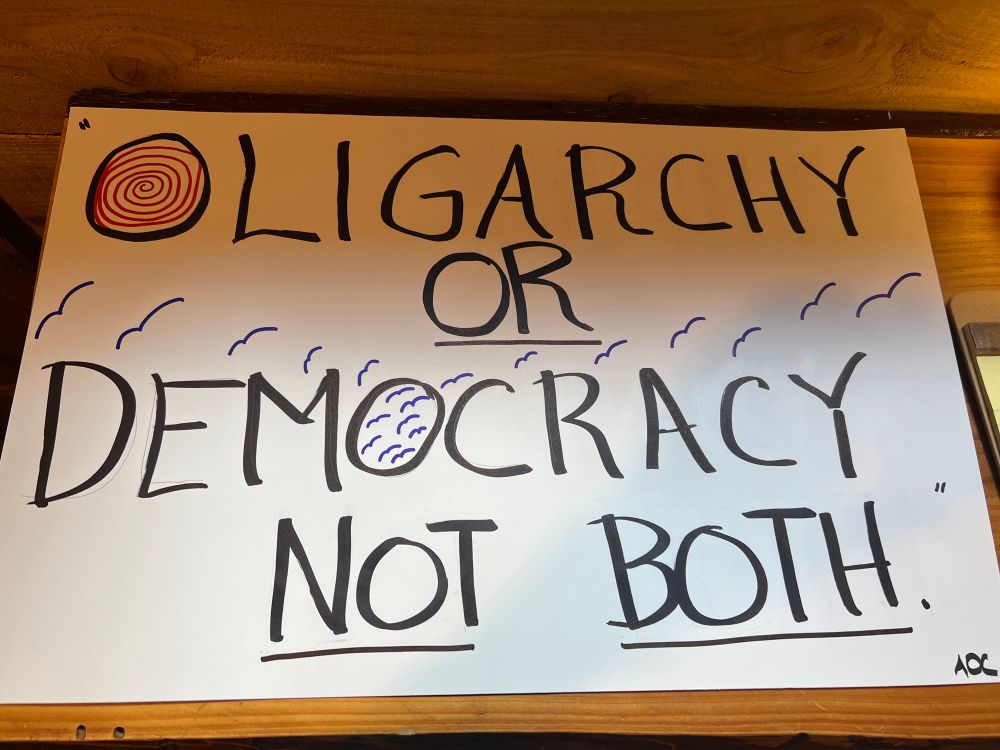 "OLIGARCHY
OR
DEMOCRACY
NOT BOTH."
AOC